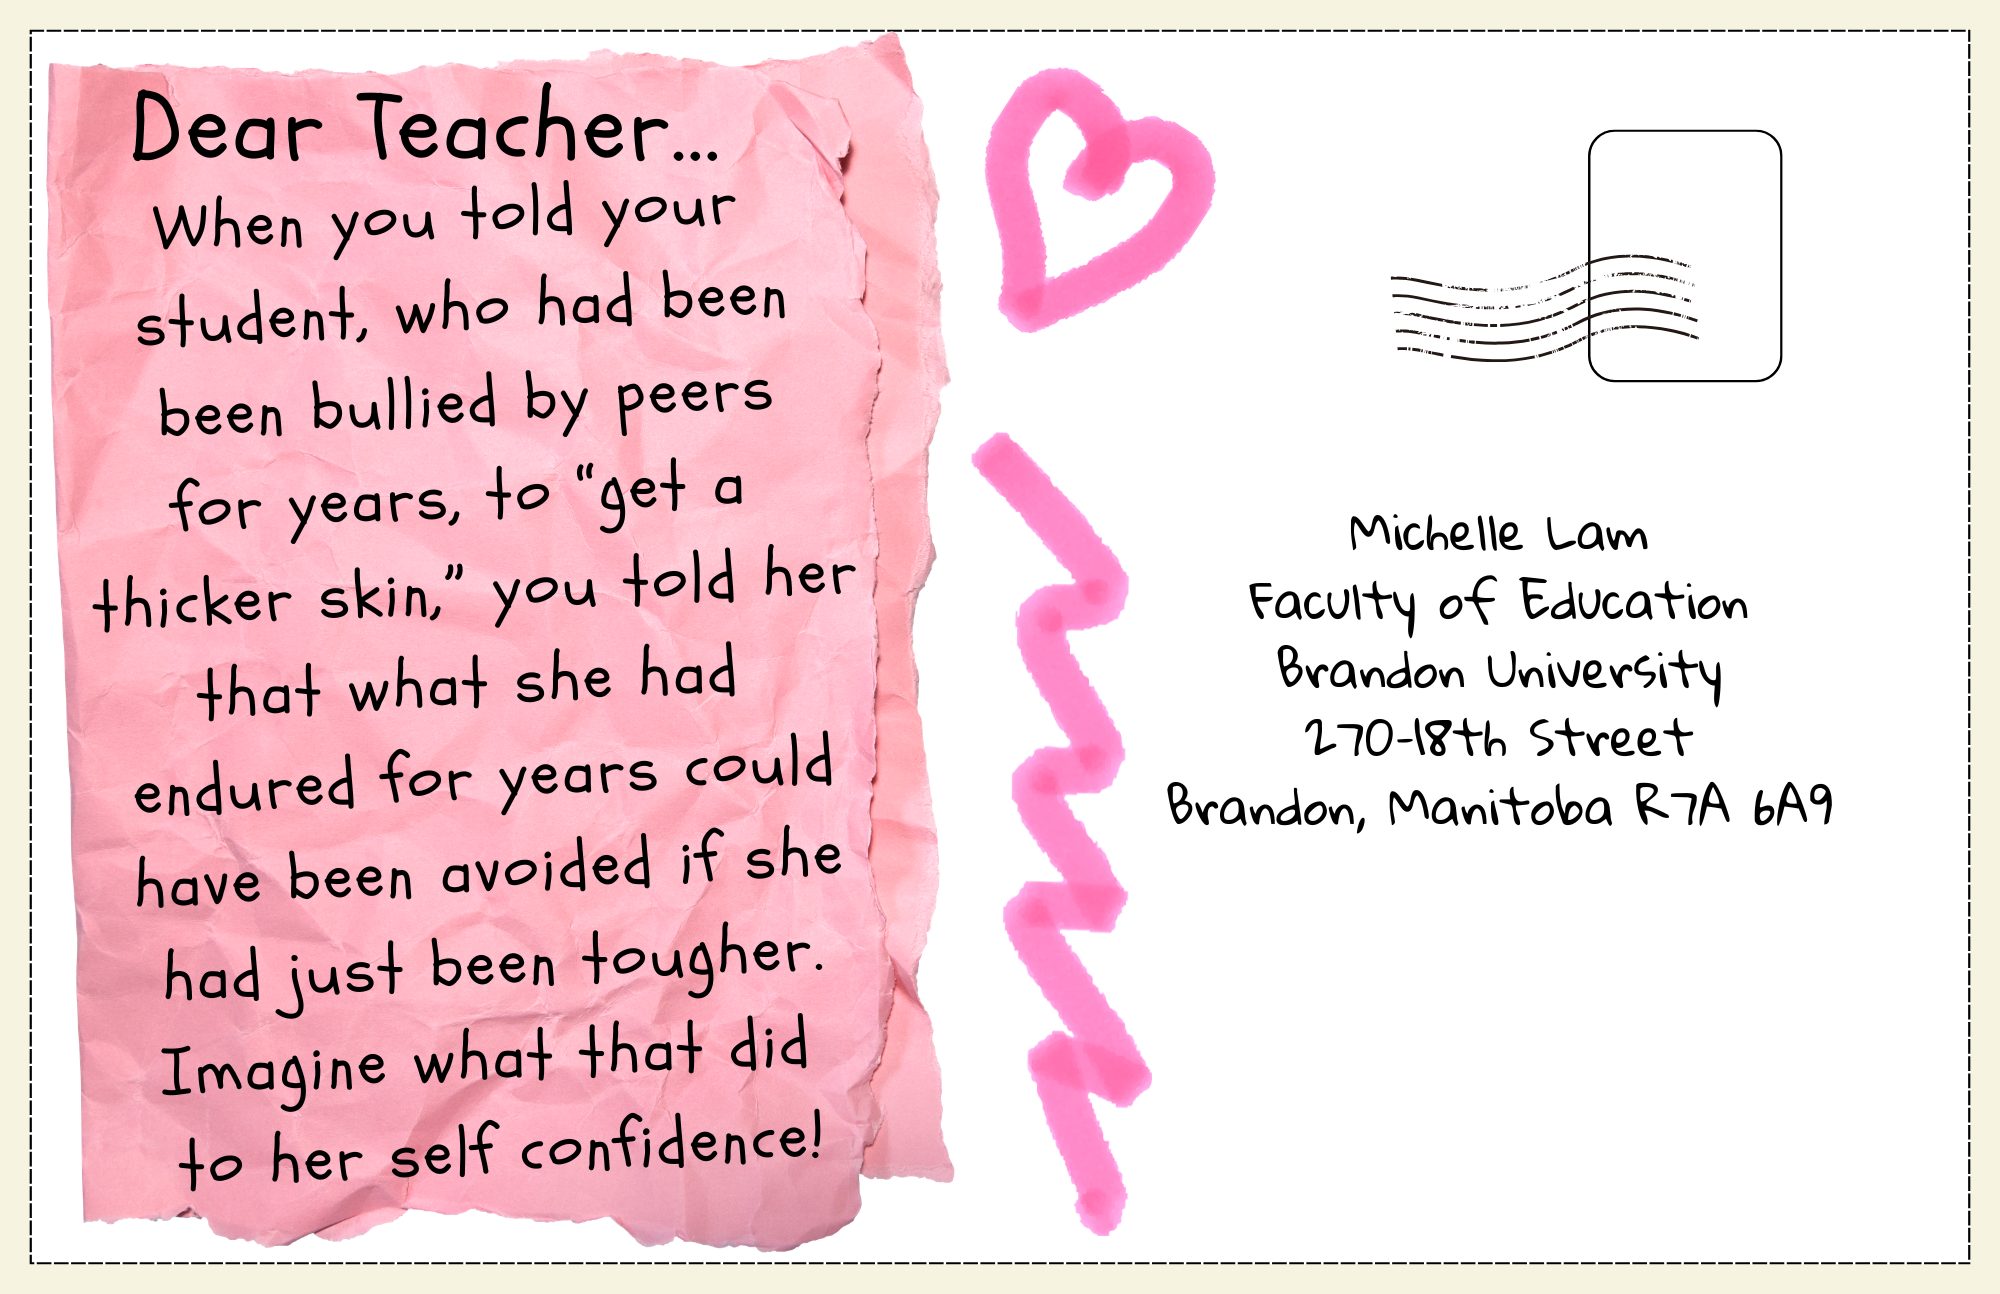 Dear Teacher...
When you told your
student, who had been
been bullied by peers
for years, to “get a
thicker skin,” you told her
that what she had
endured for years could
have been avoided if she
had just been tougher.
Imagine what that did
to her self confidence!
Michelle Lam
Faculty of Education
Brandon University
270-18th Street
Brandon, Manitoba R7A 6A9